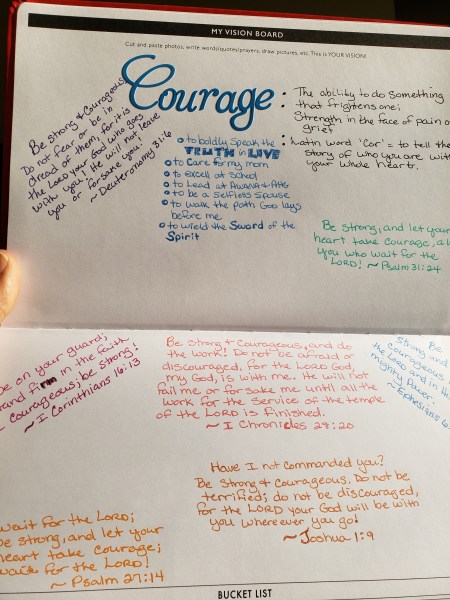 MY VISION BOARD
Cut and paste photos, write words/quotes/prayers, draw pictures, etc. This is YOUR VISION!
Courage
: The ability to do something
that frightens one;
: Strength in the face of pain o
grief
: Latin word "Cor" = to tell the
story of who you are wit
your whole heart.
Be strong & Courageous
Do not fear or be in
dread of them, for it is
the LORD your God who goes
with you. He will not leave
you or forsake you!
~ Deuteronomy 31:6
to boldly speak the
TRUTH in LOVE
to care for my mom
to excel at school
to Lead at AWANA & AHG
to be a selfless spouse
to walk the path God lays
before me
to wield the Sword of the
Spirit
Be strong, and let your
heart take courage, al
you who wait for the
LORD! ~ Psalm 31:24
be on your guard;
tand firm in the faith
courageous; be strong!
~ I Corinthians 16:13
Be strong & courageous, and do
the work! Do not be afraid or
discouraged, for the LORD God,
my God, is with me. He will not
fail me or forsake me until all the
work for the service of the temple
of the LORD is finished.
~ I Chronicles 28:20
Be
strong and
courageous in
the LORD and in th
mighty power.
~Ephesians 6:
Have I not commanded you?
Be strong & courageous. Do not be
terrified; do not be discouraged,
for the LORD your God will be with
you wherever you go!
~ Joshua 1:9
wait for the LORD;
be strong, and let your
heart take courage;
wait for the LORD!
~ Psalm 27:14
BUCKET LIST